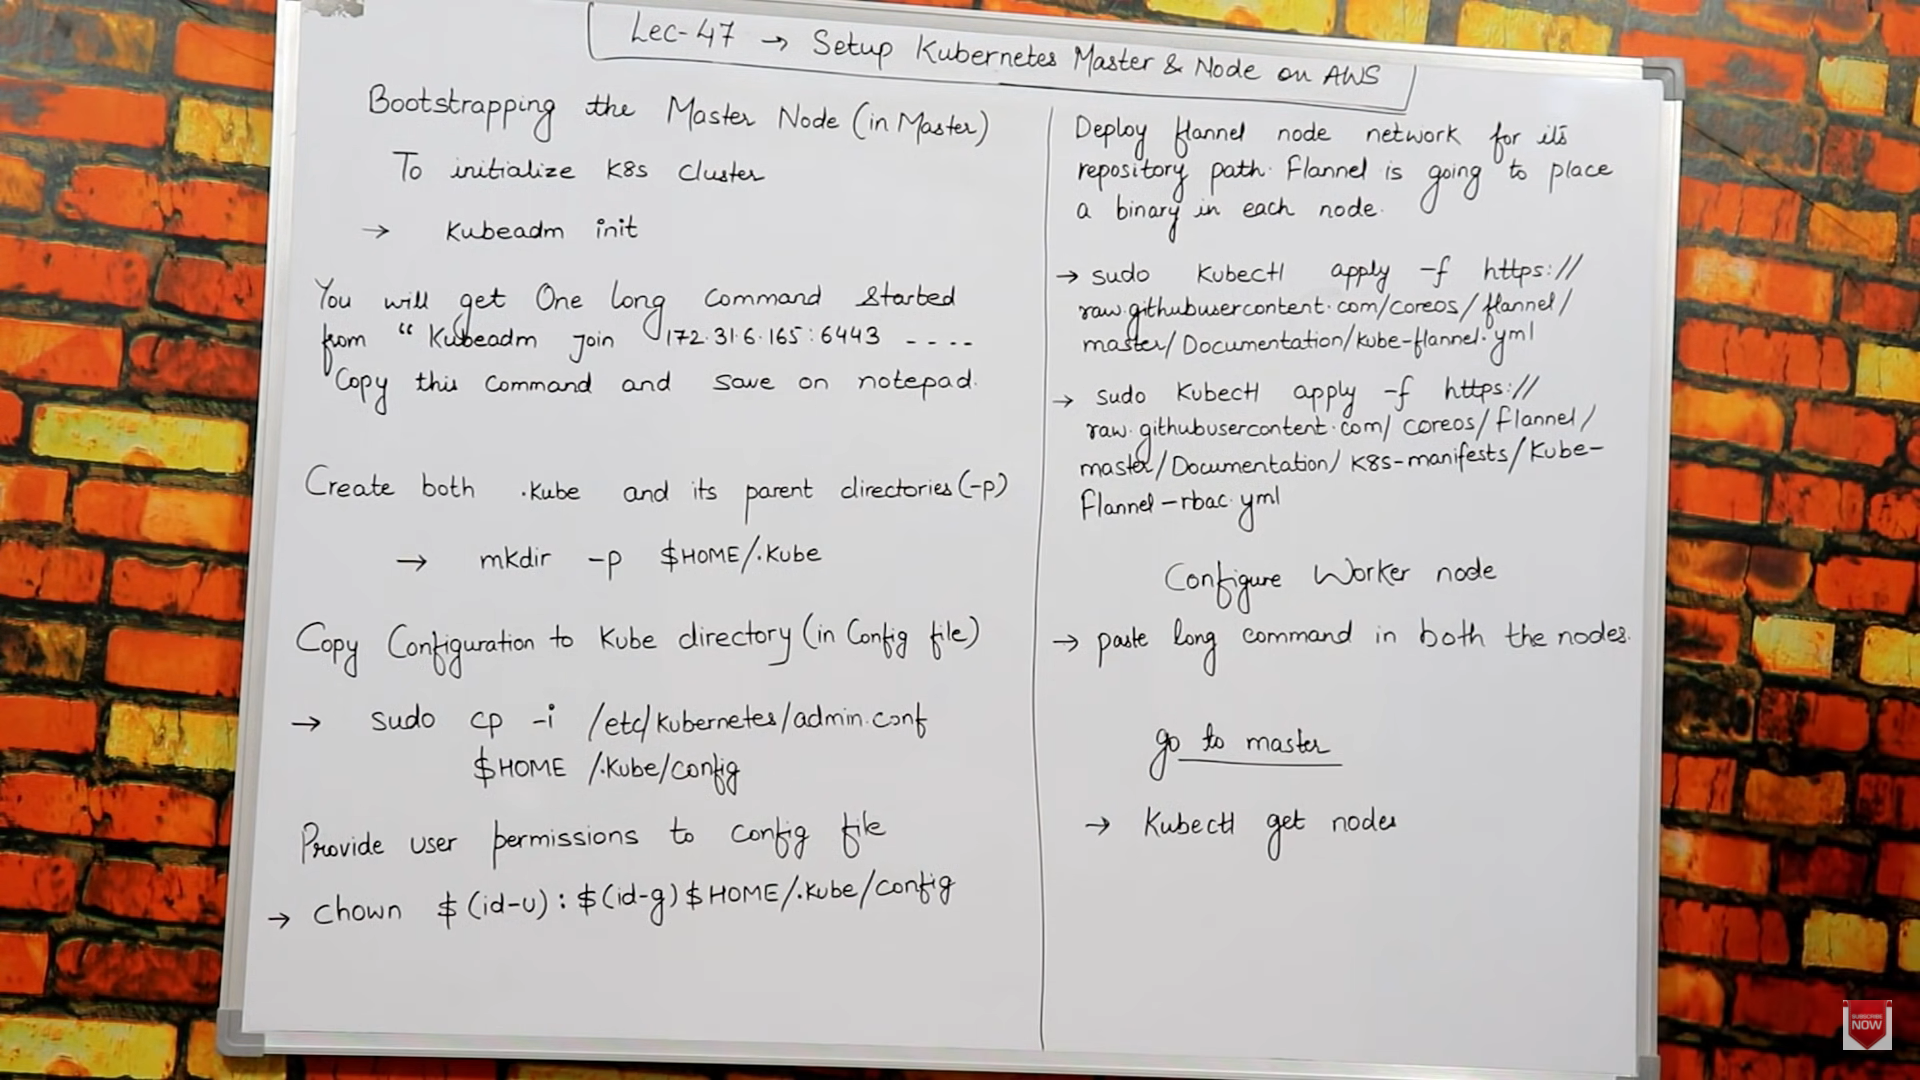 Lec-47 → Setup Kubernetes Master & Node on AWS
Bootstrapping the Master Node (in Master)
To initialize K8s cluster
→ Kubeadm init
You will get One long command started
from "Kubeadm join 172.31.6.165:6443 ----
Copy this command and save on notepad.
Create both .Kube and its parent directories (-p)
→ mkdir -p $HOME/.Kube
Copy Configuration to Kube directory (in Config file)
→ sudo cp -i /etc/kubernetes/admin.conf
$HOME /.Kube/config
Provide user permissions to config file
→ chown $(id-u):$(id-g) $HOME/.Kube/config
Deploy flannel node network for its
repository path. Flannel is going to place
a binary in each node.
→ sudo Kubectl apply -f https://
raw.githubusercontent.com/coreos/flannel/
master/Documentation/kube-flannel.yml
→ sudo Kubectl apply -f https://
raw.githubusercontent.com/coreos/flannel/
master/Documentation/K8s-manifests/Kube-
Flannel-rbac.yml
Configure Worker node
→ paste long command in both the nodes.
go to master
→ Kubectl get nodes
SUBSCRIBE
NOW